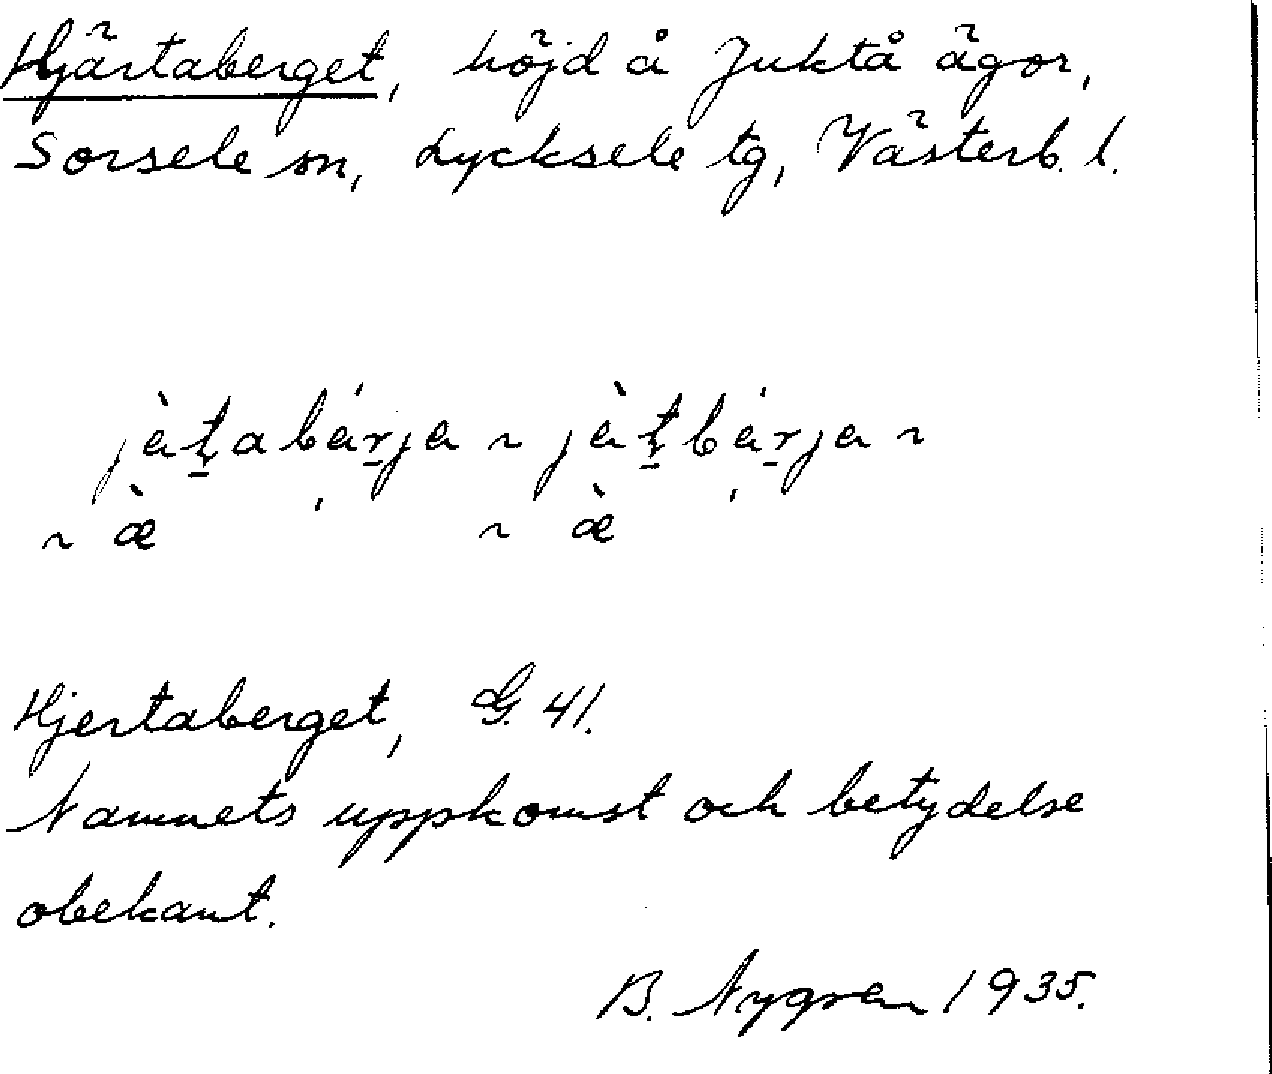 Hjärtaberget, höjd å Juktå ägor,
Sorsele sn, Lycksele tg, Västerb. l.
jàṯabárja ~ jàṯbárja ~
~ æ̀ ~ æ̀
Hjertaberget, G. 41.
Namnets uppkomst och betydelse
obekant.
B. Nygren 1935.